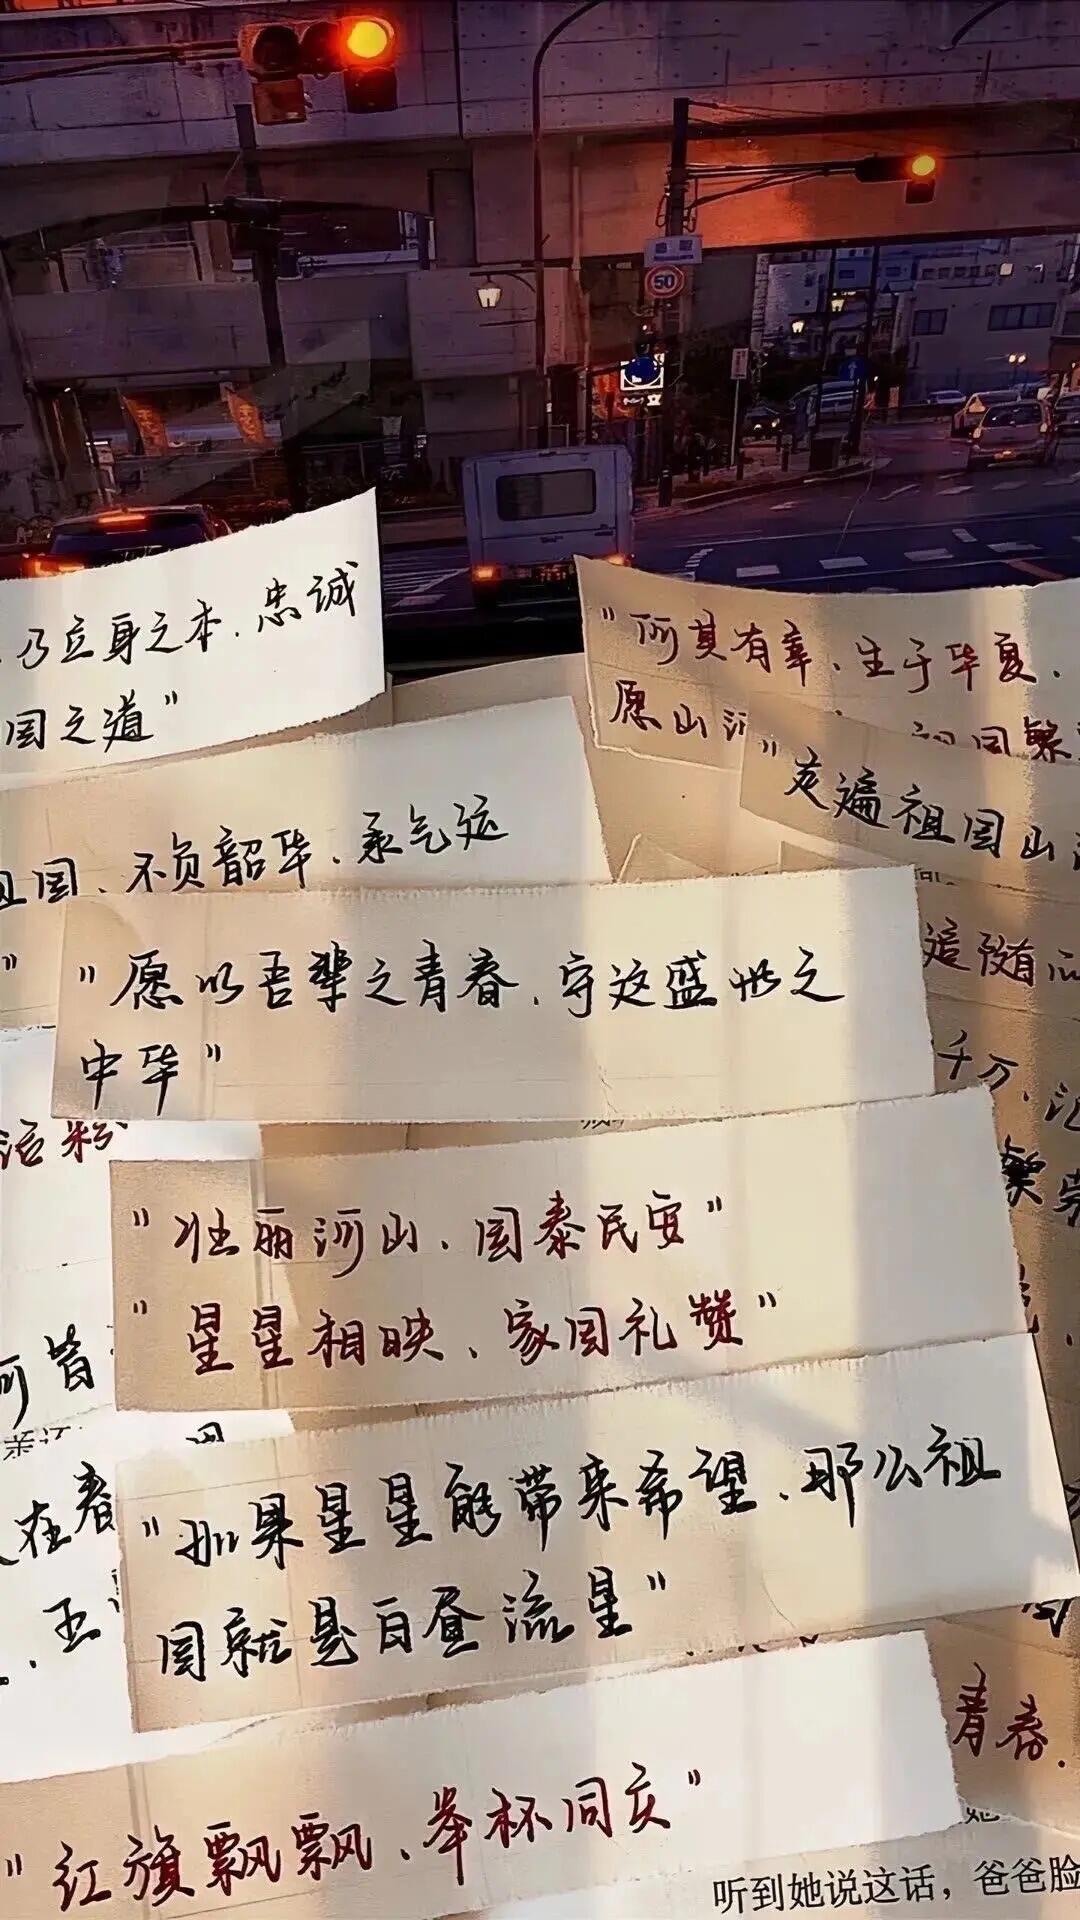 50
乃立身之本.忠诚
国之道"
"何其有幸.生于华夏.
愿山河
"走遍祖国山
祖国.不负韶华.承气运
"
追随
"愿以吾辈之青春.守这盛世之
中华"
千万.汇
活粉
繁荣
"壮丽河山.国泰民安"
"星星相映.家国礼赞"
河皆
在春
"如果星星能带来希望.那么祖
国就是白昼流星"
.五
青春.
"红旗飘飘.举杯同庆"
听到她说这话，爸爸脸